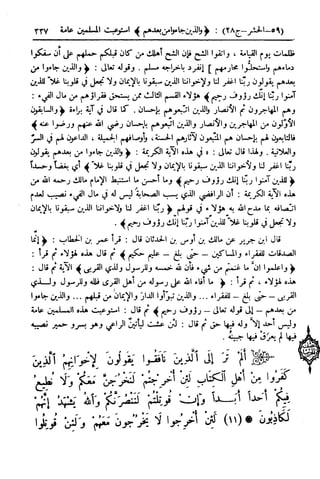 (٥٩-الحشر-ج٢٨): ﴿والذين جاءوا من بعدهم﴾ استوعبت المسلمين عامة ٣٣٧
ظلمات يوم القيامة ، واتقوا الشح فإن الشح أهلك من كان قبلكم حملهم على أن سفكوا
دماءهم واستحلُّوا محارمهم ] إنفرد بإخراجه مسلم . وقوله تعالى : ﴿والذين جاءوا من
بعدهم يقولون ربّنا اغفر لنا ولإخواننا الذين سبقونا بالإيمان ولا تجعل في قلوبنا غلاً للذين
آمنوا ربّنا إنك رءوف رحيم﴾ هؤلاء القسم الثالث ممن يستحق فقراؤهم من مال الفيء :
وهم المهاجرون ثم الأنصار والذين اتبعوهم بإحسان . كما قال في آية براءة ﴿والسابقون
الأوّلون من المهاجرين والأنصار والذين اتبعوهم بإحسان رضي الله عنهم ورضوا عنه﴾
فالتابعون لهم بإحسان هم المتبعون لآثارهم الحسنة، وأوصافهم الجميلة ، الداعون لهم في السرّ
والعلانية . ولهذا قال تعالى : في هذه الآية الكريمة : ﴿والذين جاءوا من بعدهم يقولون
ربنا اغفر لنا ولأخواننا الذين سبقونا بالإيمان ولا تجعل في قلوبنا غلاً﴾ أي بغضاً وحسداً
﴿للذين آمنوا ربّنا إنك رءوف رحيم﴾ وما أحسن ما استنبط الإمام مالك رحمه الله من
هذه الآية الكريمة : أن الرافضي الذي يسب الصحابة ليس له في مال الفيء نصيب لعدم
اتصافه بما مدح الله به هؤلاء في قولهم ﴿ربنا اغفر لنا ولإخواننا الذين سبقونا بالإيمان
ولا تجعل في قلوبنا غلاً للذين آمنوا ربّنا إنك رءوف رحيم﴾ .
قال ابن جرير عن مالك بن أوس بن الحدثان قال : قرأ عمر بن الخطاب : ﴿إنّما
الصدقات للفقراء والمساكين – حتى بلغ – عليم حكيم﴾ ثم قال هذه لهؤلاء ثم قرأ :
﴿واعلموا إن ما غنمتم من شيء فأن لله خمسه وللرسول ولذي القربى﴾ الآية ثم قال :
هذه لهؤلاء ، ثم قرأ : ﴿ما أفاء الله على رسوله من أهل القرى فلله وللرسول ولــذي
القربى – حتى بلغ – للفقراء ... والذين تبوأوا الدار والإيمان من قبلهم ... والذين جاءوا
من بعدهم – إلى قوله تعالى – رءوف رحيم﴾ ثم قال : استوعبت هذه المسلمين عامة
وليس أحد إلاّ وله فيها حق ثم قال : لئن عشت ليأتين الراعي وهو بسرو حمير نصيبه
فيها لم يعرق فيها جبينه .
أَلَمْ تَرَ إِلَى الَّذِينَ نَافَقُوا يَقُولُونَ لِإِخْوَانِهِمُ الَّذِينَ
كَفَرُوا مِنْ أَهْلِ الْكِتَابِ لَئِنْ أُخْرِجْتُمْ لَنَخْرُجَنَّ مَعَكُمْ وَلَا نُطِيعُ
فِيكُمْ أَحَداً أَبَداً وَإِن قُوتِلْتُمْ لَنَنصُرَنَّكُمْ وَاللَّهُ يَشْهَدُ إِنَّهُمْ
لَكَاذِبُونَ * (١١) لَئِنْ أُخْرِجُوا لَا يَخْرُجُونَ مَعَهُمْ وَلَئِن قُوتِلُوا